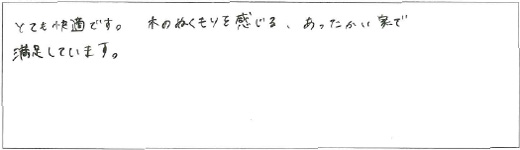 とても快適です。 木のぬくもりを感じる、あったかい家で
満足しています。